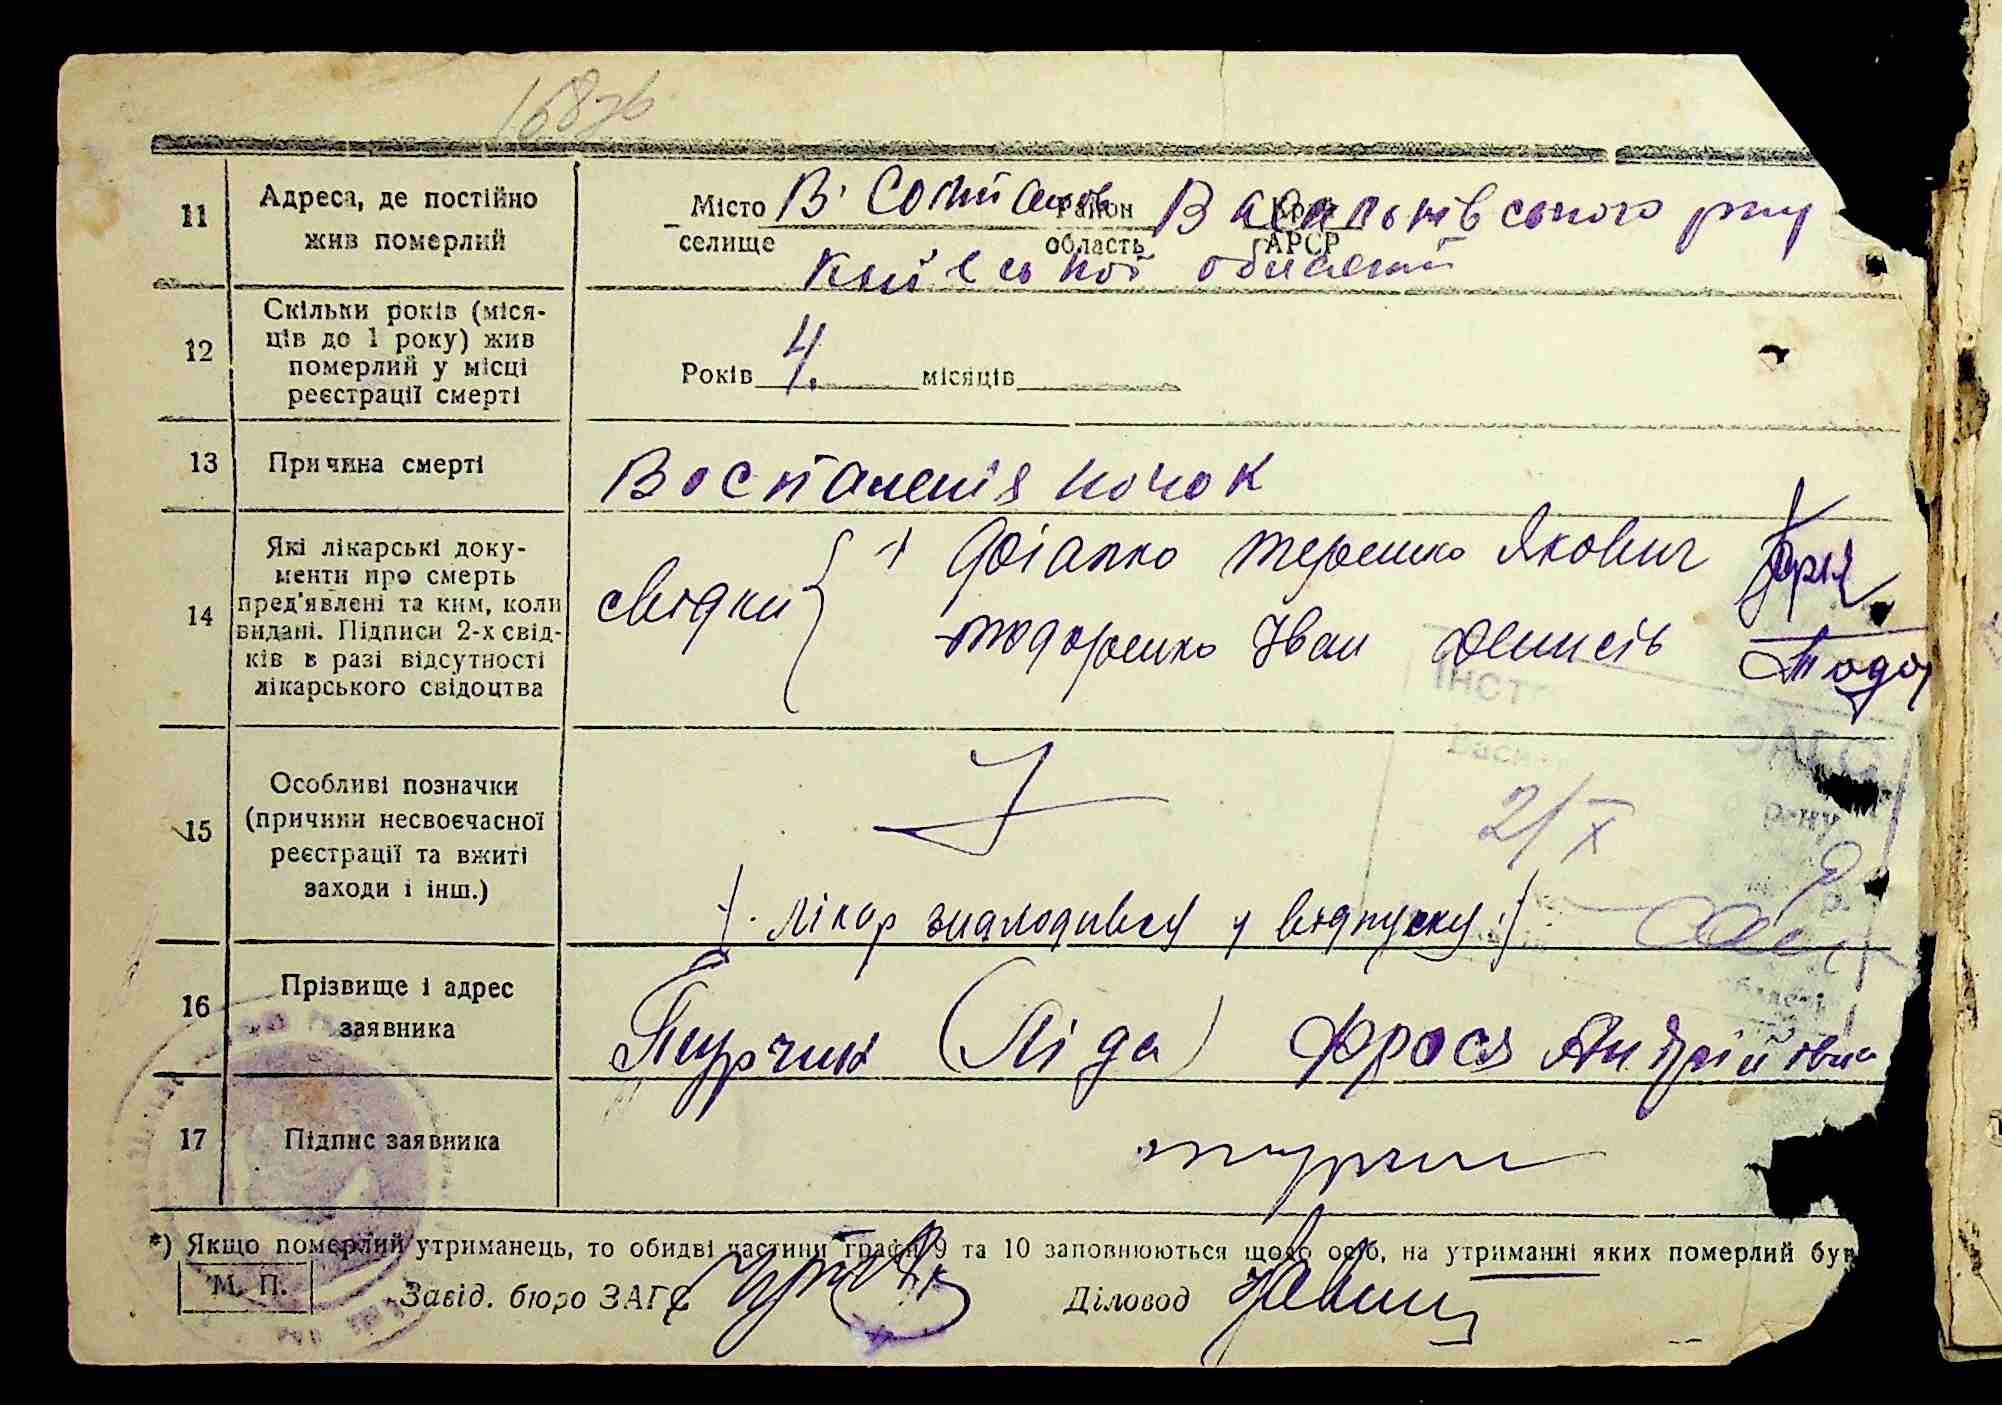 168
11 Адреса, де постійно жив померлий
Місто селище В. Солтанов Район область Васильківського р-ну Край АРСР
Київської області
12 Скільки років (міся-
ців до 1 року) жив
померлий у місці
реєстрації смерті
Років 4. місяців
13 Причина смерті
Воспаленія почок
14 Які лікарські доку-
менти про смерть
пред'явлені та ким, коли
видані. Підписи 2-х свід-
ків в разі відсутності
лікарського свідоцтва
свідки
Терешко Якович
Тодоренко Іван Денисів Тодо
Інст ЗАГС
Васи
15 Особливі позначки
(причини несвоєчасної
реєстрації та вжиті
заходи і інш.)
2/X
лікар знаходився у відпуску
16 Прізвище і адрес
заявника
Турчин (Ліда) Фрося Андріївна
17 Підпис заявника
Турчин
*) Якщо померлий утриманець, то обидві частини графи 9 та 10 заповнюються щодо осіб, на утриманні яких померлий був
М. П. Завід. бюро ЗАГС Діловод